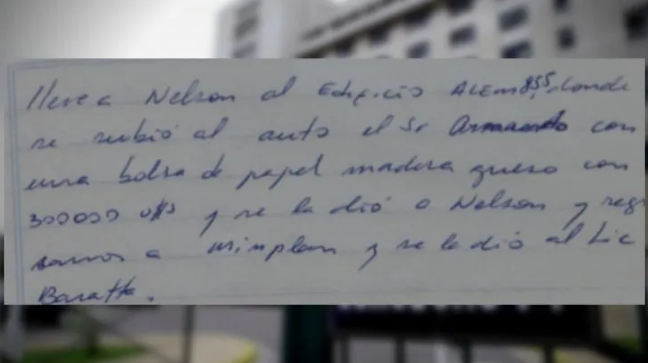 lleve a Nelson al Edificio ALEM 855, donde
se subió al auto el Sr Armando con
una bolsa de papel madera grueso con
300000 U$S y se la dió a Nelson y regre
samos a minplan y se la dió al Lic
Baratta.